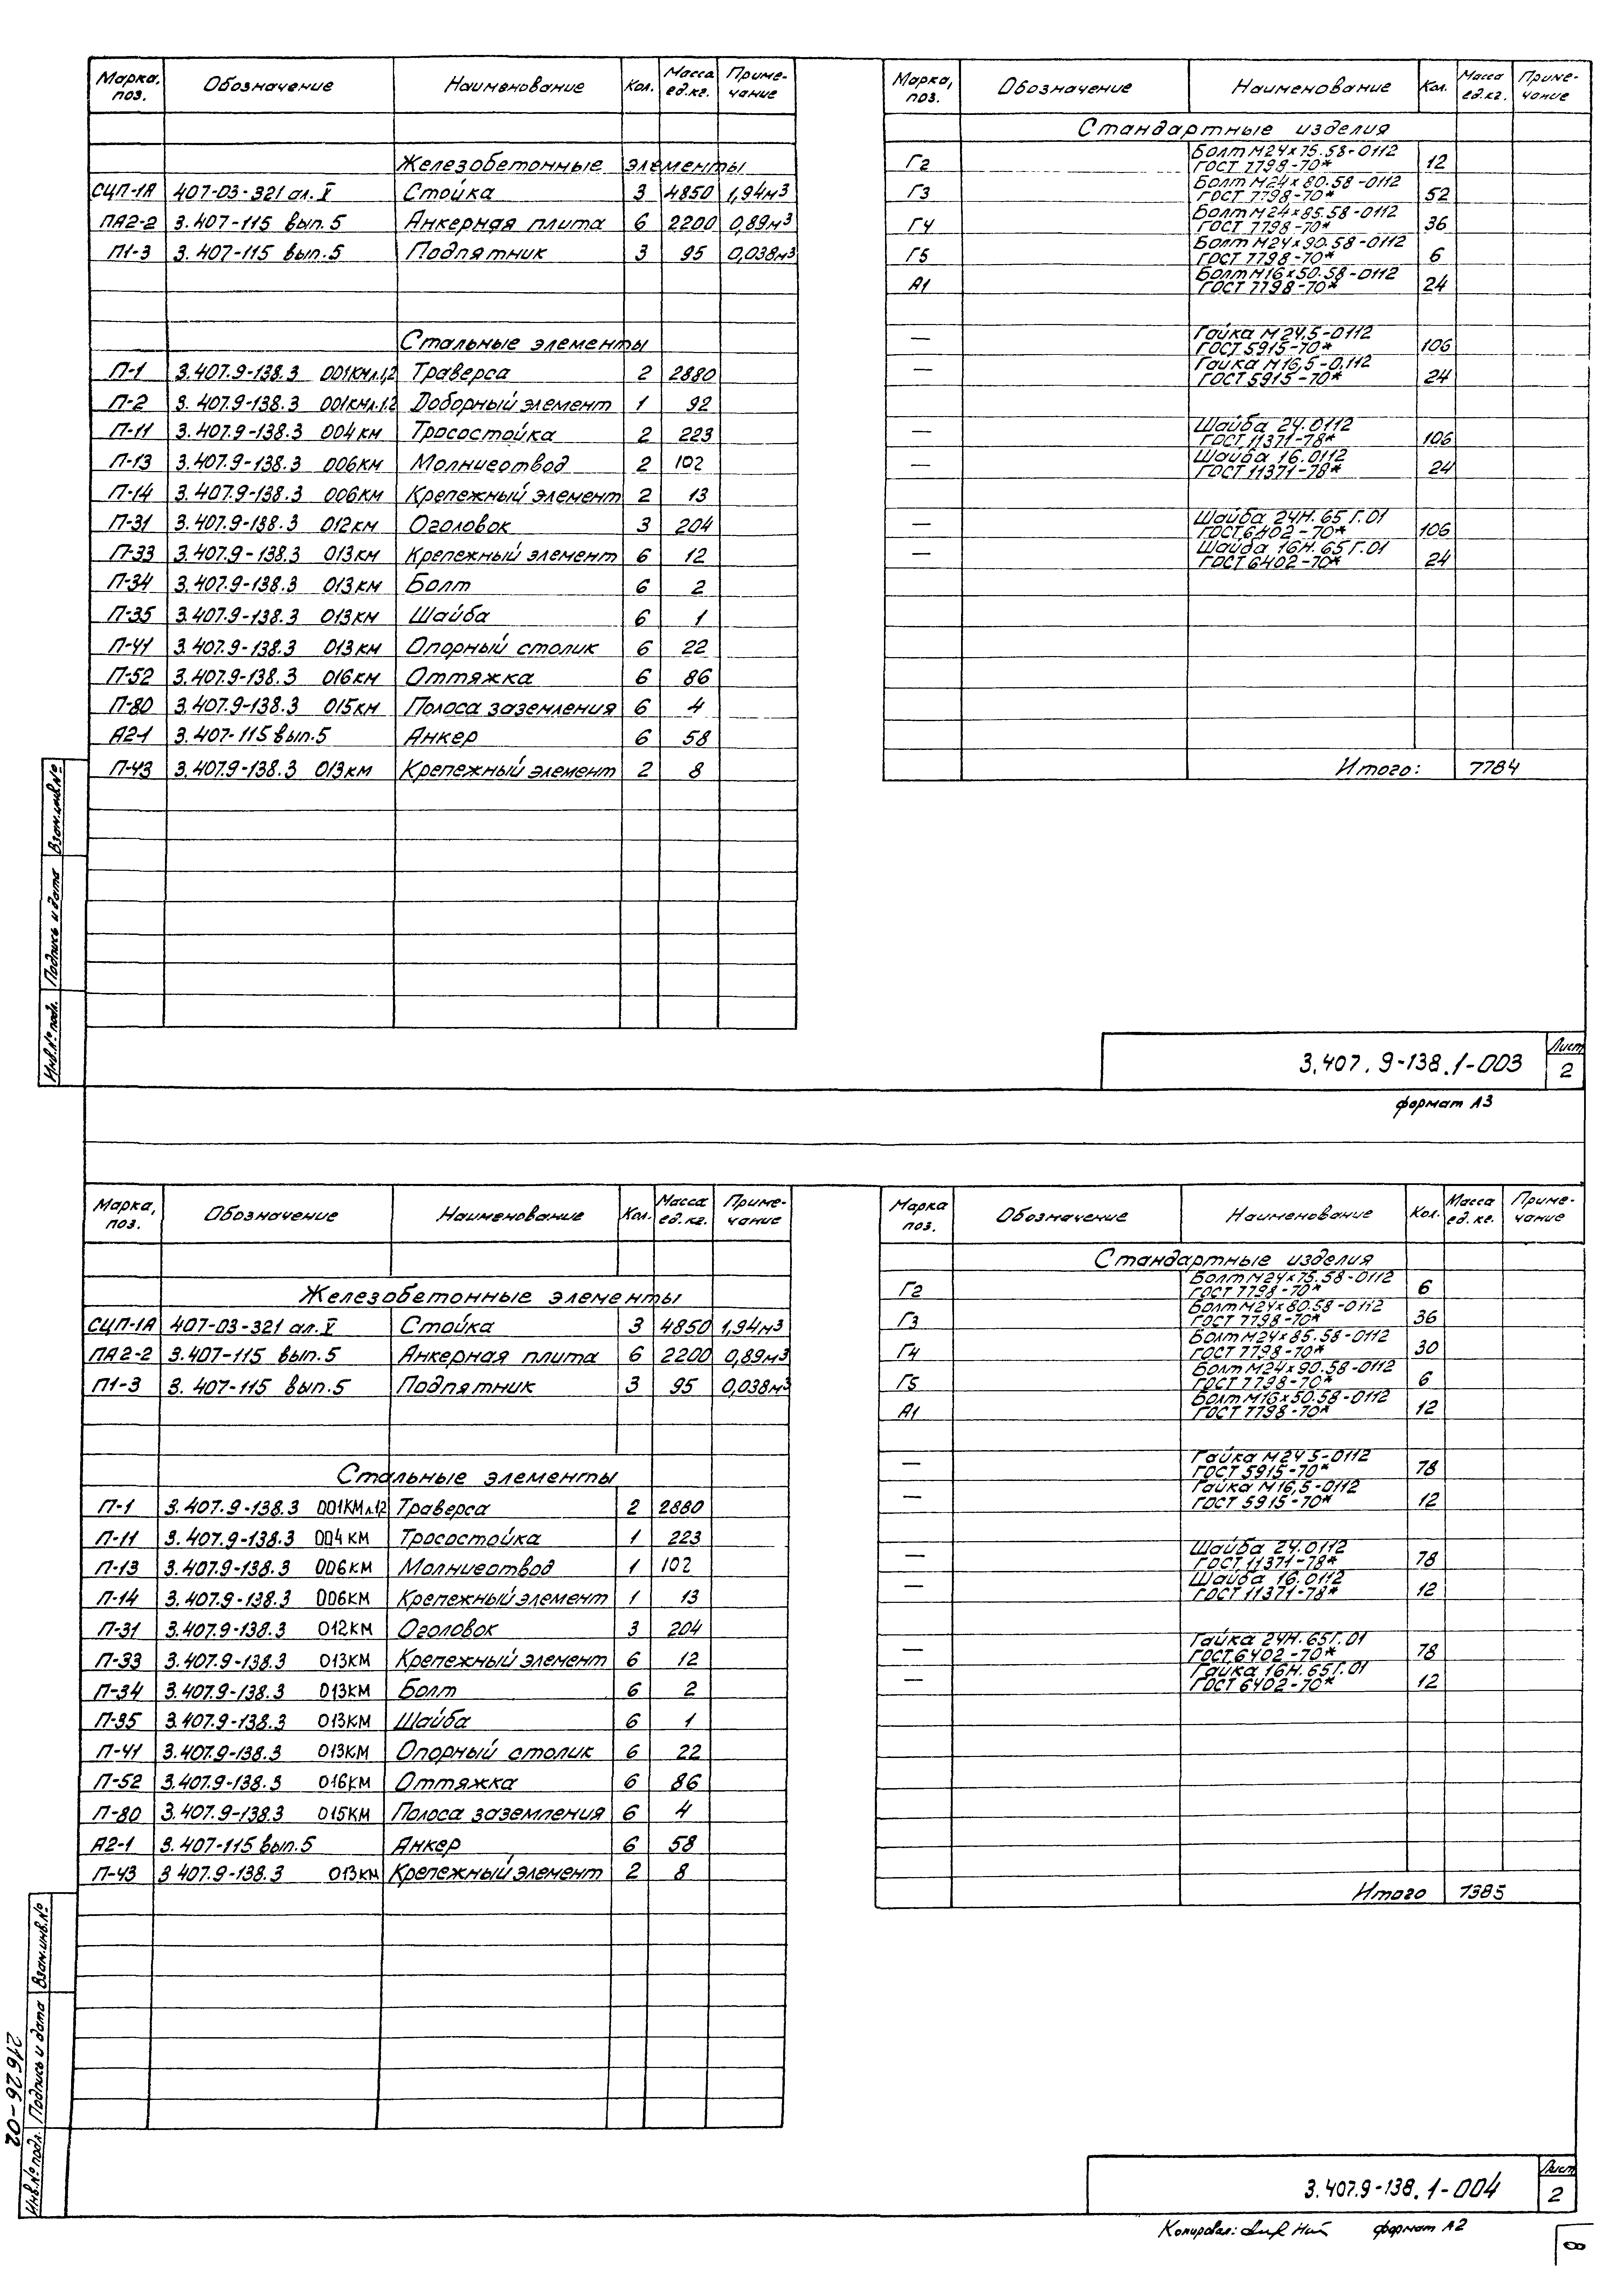 Марка, поз. Обозначение Наименование Кол. Масса ед.кг. Приме-чание
Железобетонные элементы
СЦП-1А 407-03-321 ал.V Стойка 3 4850 1,94м³
ПА2-2 3.407-115 вып.5 Анкерная плита 6 2200 0,89м³
П1-3 3.407-115 вып.5 Подпятник 3 95 0,038м³
Стальные элементы
П-1 3.407.9-138.3 001КМл.1,2 Траверса 2 2880
П-2 3.407.9-138.3 001КМл.1.2 Доборный элемент 1 92
П-11 3.407.9-138.3 004КМ Тросостойка 2 223
П-13 3.407.9-138.3 006КМ Молниеотвод 2 102
П-14 3.407.9-138.3 006КМ Крепежный элемент 2 13
П-31 3.407.9-138.3 012КМ Оголовок 3 204
П-33 3.407.9-138.3 013КМ Крепежный элемент 6 12
П-34 3.407.9-138.3 013КМ Болт 6 2
П-35 3.407.9-138.3 013КМ Шайба 6 1
П-41 3.407.9-138.3 013КМ Опорный столик 6 22
П-52 3.407.9-138.3 016КМ Оттяжка 6 86
П-80 3.407.9-138.3 015КМ Полоса заземления 6 4
А2-1 3.407-115 вып.5 Анкер 6 58
П-43 3.407.9-138.3 013КМ Крепежный элемент 2 8
Марка, поз. Обозначение Наименование Кол. Масса ед.кг. Приме-чание
Стандартные изделия
Г2 Болт М24х75.58-0112 ГОСТ 7798-70* 12
Г3 Болт М24х80.58-0112 ГОСТ 7798-70* 52
Г4 Болт М24х85.58-0112 ГОСТ 7798-70* 36
Г5 Болт М24х90.58-0112 ГОСТ 7798-70* 6
А1 Болт М16х50.58-0112 ГОСТ 7798-70* 24
— Гайка М24,5-0112 ГОСТ 5915-70* 106
— Гайка М16,5-0,112 ГОСТ 5915-70* 24
— Шайба 24.0112 ГОСТ 11371-78* 106
— Шайба 16.0112 ГОСТ 11371-78* 24
— Шайба 24Н.65Г.01 ГОСТ 6402-70* 106
— Шайба 16Н.65Г.01 ГОСТ 6402-70* 24
Итого: 7784
Инв.№ подл. Подпись и дата Взам.инв.№
3.407.9-138.1-003
Лист
2
формат А3
Марка, поз. Обозначение Наименование Кол. Масса ед.кг. Приме-чание
Железобетонные элементы
СЦП-1А 407-03-321 ал.V Стойка 3 4850 1,94м³
ПА2-2 3.407-115 вып.5 Анкерная плита 6 2200 0,89м³
П1-3 3.407-115 вып.5 Подпятник 3 95 0,038м³
Стальные элементы
П-1 3.407.9-138.3 001КМл.1,2 Траверса 2 2880
П-11 3.407.9-138.3 004КМ Тросостойка 1 223
П-13 3.407.9-138.3 006КМ Молниеотвод 1 102
П-14 3.407.9-138.3 006КМ Крепежный элемент 1 13
П-31 3.407.9-138.3 012КМ Оголовок 3 204
П-33 3.407.9-138.3 013КМ Крепежный элемент 6 12
П-34 3.407.9-138.3 013КМ Болт 6 2
П-35 3.407.9-138.3 013КМ Шайба 6 1
П-41 3.407.9-138.3 013КМ Опорный столик 6 22
П-52 3.407.9-138.3 016КМ Оттяжка 6 86
П-80 3.407.9-138.3 015КМ Полоса заземления 6 4
А2-1 3.407-115 вып.5 Анкер 6 58
П-43 3 407.9-138.3 013КМ Крепежный элемент 2 8
Марка поз. Обозначение Наименование Кол. Масса ед.кг. Приме-чание
Стандартные изделия
Г2 Болт М24х75.58-0112 ГОСТ 7798-70* 6
Г3 Болт М24х80.58-0112 ГОСТ 7798-70* 36
Г4 Болт М24х85.58-0112 ГОСТ 7798-70* 30
Г5 Болт М24х90.58-0112 ГОСТ 7798-70* 6
А1 Болт М16х50.58-0112 ГОСТ 7798-70* 12
— Гайка М24,5-0112 ГОСТ 5915-70* 78
— Гайка М16,5-0112 ГОСТ 5915-70* 12
— Шайба 24.0112 ГОСТ 11371-78* 78
— Шайба 16.0112 ГОСТ 11371-78* 12
— Гайка 24Н.65Г.01 ГОСТ 6402-70* 78
— Гайка 16Н.65Г.01 ГОСТ 6402-70* 12
Итого 7385
Инв.№ подл. Подпись и дата Взам.инв.№
21626-02
3.407.9-138.1-004
Лист
2
Копировал: формат А2
8